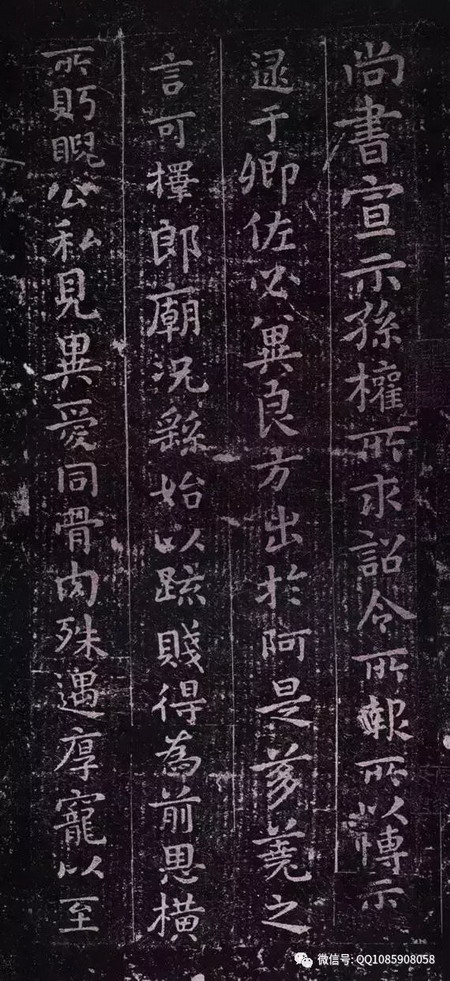 尚書宣示孫權所求詔令所報所以博示
逮于卿佐必冀良方出於阿是芻蕘之
言可擇郎廟況繇始以疏賤得為前恩橫
所眄睨公私見異愛同骨肉殊遇厚寵以至
微信号: QQ1085908058